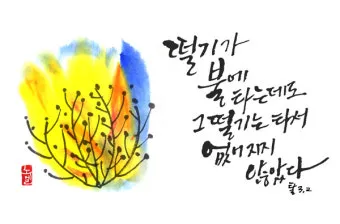 떨기가
불에
타는데도
그 떨기는 타서
없어지지
않았다
출 3,2